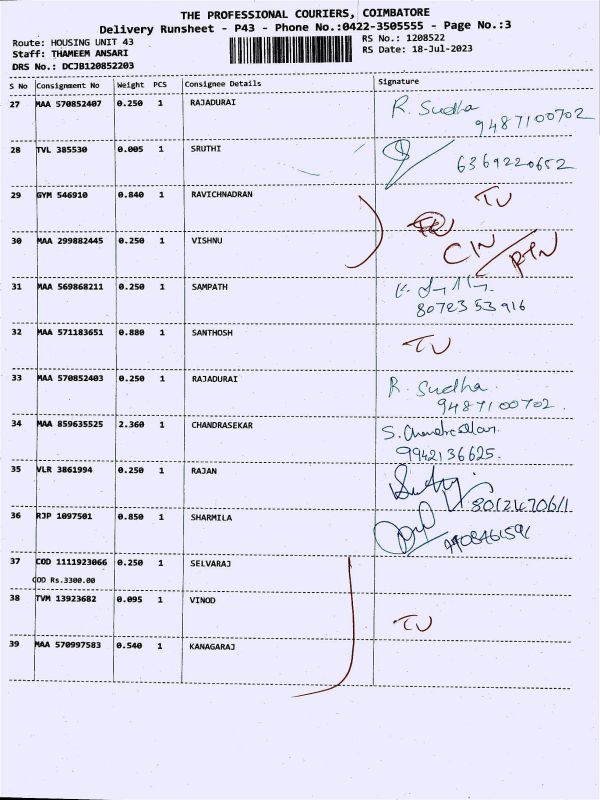 THE PROFESSIONAL COURIERS, COIMBATORE
Delivery Runsheet - P43 - Phone No.:0422-3505555 - Page No.:3
Route: HOUSING UNIT 43
RS No.: 1208522
Staff: THAMEEM ANSARI
RS Date: 18-Jul-2023
DRS No.: DCJB120852203
S No Consignment No Weight PCS Consignee Details Signature
27 MAA 570852407 0.250 1 RAJADURAI R. Sudha
9487100702
28 TVL 385530 0.005 1 SRUTHI
6369220652
29 GYM 546910 0.840 1 RAVICHNADRAN TU
30 MAA 299882445 0.250 1 VISHNU CIN/RTN
31 MAA 569868211 0.250 1 SAMPATH
8072353916
32 MAA 571183651 0.880 1 SANTHOSH TU
33 MAA 570852403 0.250 1 RAJADURAI R. Sudha
9487100702.
34 MAA 859635525 2.360 1 CHANDRASEKAR
9942136625.
35 VLR 3861994 0.250 1 RAJAN
36 RJP 1097501 0.850 1 SHARMILA
37 COD 1111923066 0.250 1 SELVARAJ
COD Rs.3300.00
38 TVM 13923682 0.095 1 VINOD TU
39 MAA 570997583 0.540 1 KANAGARAJ